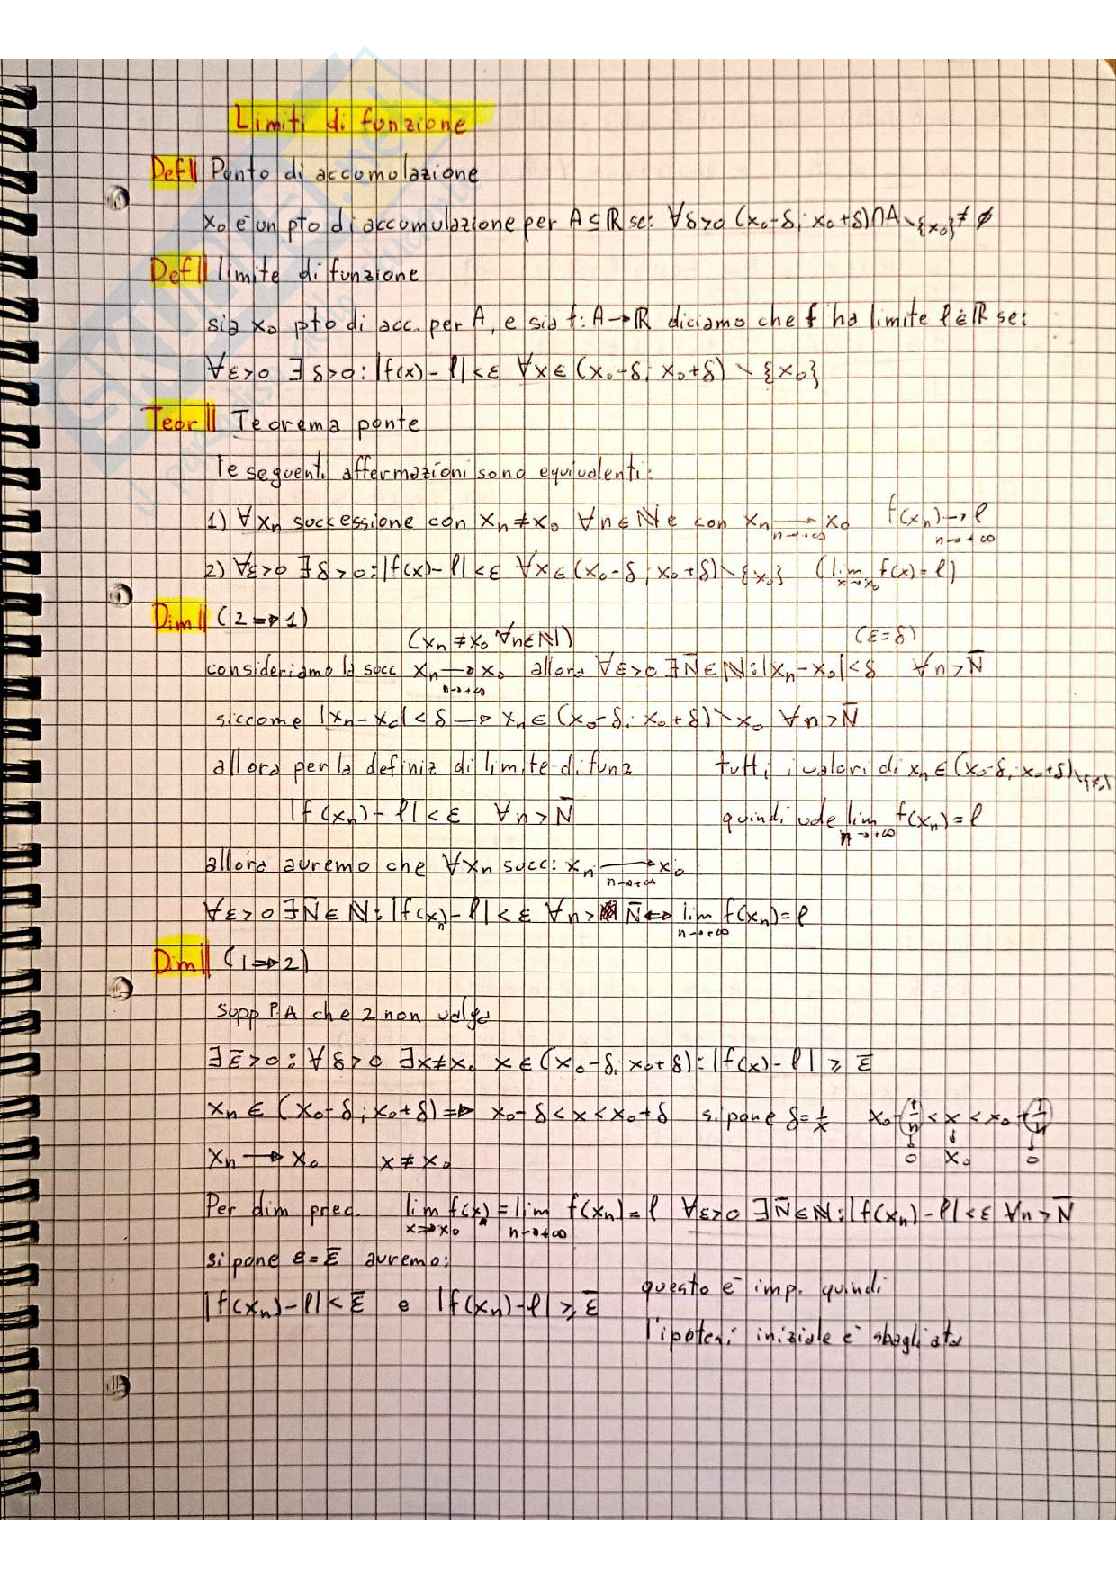 Limiti di funzione
Def|| Punto di accomolazione
x₀ è un pto di accumulazione per A⊆ℝ se: ∀δ>0 (x₀-δ; x₀+δ)∩A∖{x₀}≠∅
Def|| limite di funzione
sia x₀ pto di acc. per A, e sia f: A→ℝ diciamo che f ha limite ℓ∈ℝ se:
∀ε>0 ∃δ>0: |f(x)-ℓ|<ε ∀x∈(x₀-δ; x₀+δ)∖{x₀}
Teor|| Teorema ponte
le seguenti affermazioni sono equivalenti:
1) ∀xₙ successione con xₙ≠x₀ ∀n∈ℕ e con xₙ→x₀ n→+∞ f(xₙ)→ℓ n→+∞
2) ∀ε>0 ∃δ>0: |f(x)-ℓ|<ε ∀x∈(x₀-δ; x₀+δ)∖{x₀} (lim x→x₀ f(x)=ℓ)
Dim|| (2⇒1)
(xₙ≠x₀ ∀n∈ℕ) (ε=δ)
consideriamo la succ xₙ→x₀ n→+∞ allora ∀ε>0 ∃N̄∈ℕ: |xₙ-x₀|<δ ∀n>N̄
siccome |xₙ-x₀|<δ → xₙ∈(x₀-δ; x₀+δ)∖x₀ ∀n>N̄
allora per la definiz di limite di funz tutti i valori di xₙ∈(x₀-δ; x₀+δ)∖{x₀}
|f(xₙ)-ℓ|<ε ∀n>N̄ quindi vale lim n→+∞ f(xₙ)=ℓ
allora avremo che ∀xₙ succ: xₙ→x₀ n→+∞
∀ε>0 ∃N̄∈ℕ: |f(xₙ)-ℓ|<ε ∀n>N̄ ⇔ lim n→+∞ f(xₙ)=ℓ
Dim|| (1⇒2)
supp P.A che 2 non valga
∃ε̄>0: ∀δ>0 ∃x≠x₀ x∈(x₀-δ; x₀+δ): |f(x)-ℓ|⩾ε̄
xₙ∈(x₀-δ; x₀+δ) ⇒ x₀-δ<x<x₀+δ si pone δ=1/x x₀-1/n<x<x₀+1/n
xₙ→x₀ x≠x₀ 0 x₀ 0
Per dim prec. lim x→x₀ f(x)=lim n→+∞ f(xₙ)=ℓ ∀ε>0 ∃N̄∈ℕ: |f(xₙ)-ℓ|<ε ∀n>N̄
si pone ε=ε̄ avremo:
|f(xₙ)-ℓ|<ε̄ e |f(xₙ)-ℓ|⩾ε̄ questo è imp. quindi
l'ipotesi iniziale è sbagliata